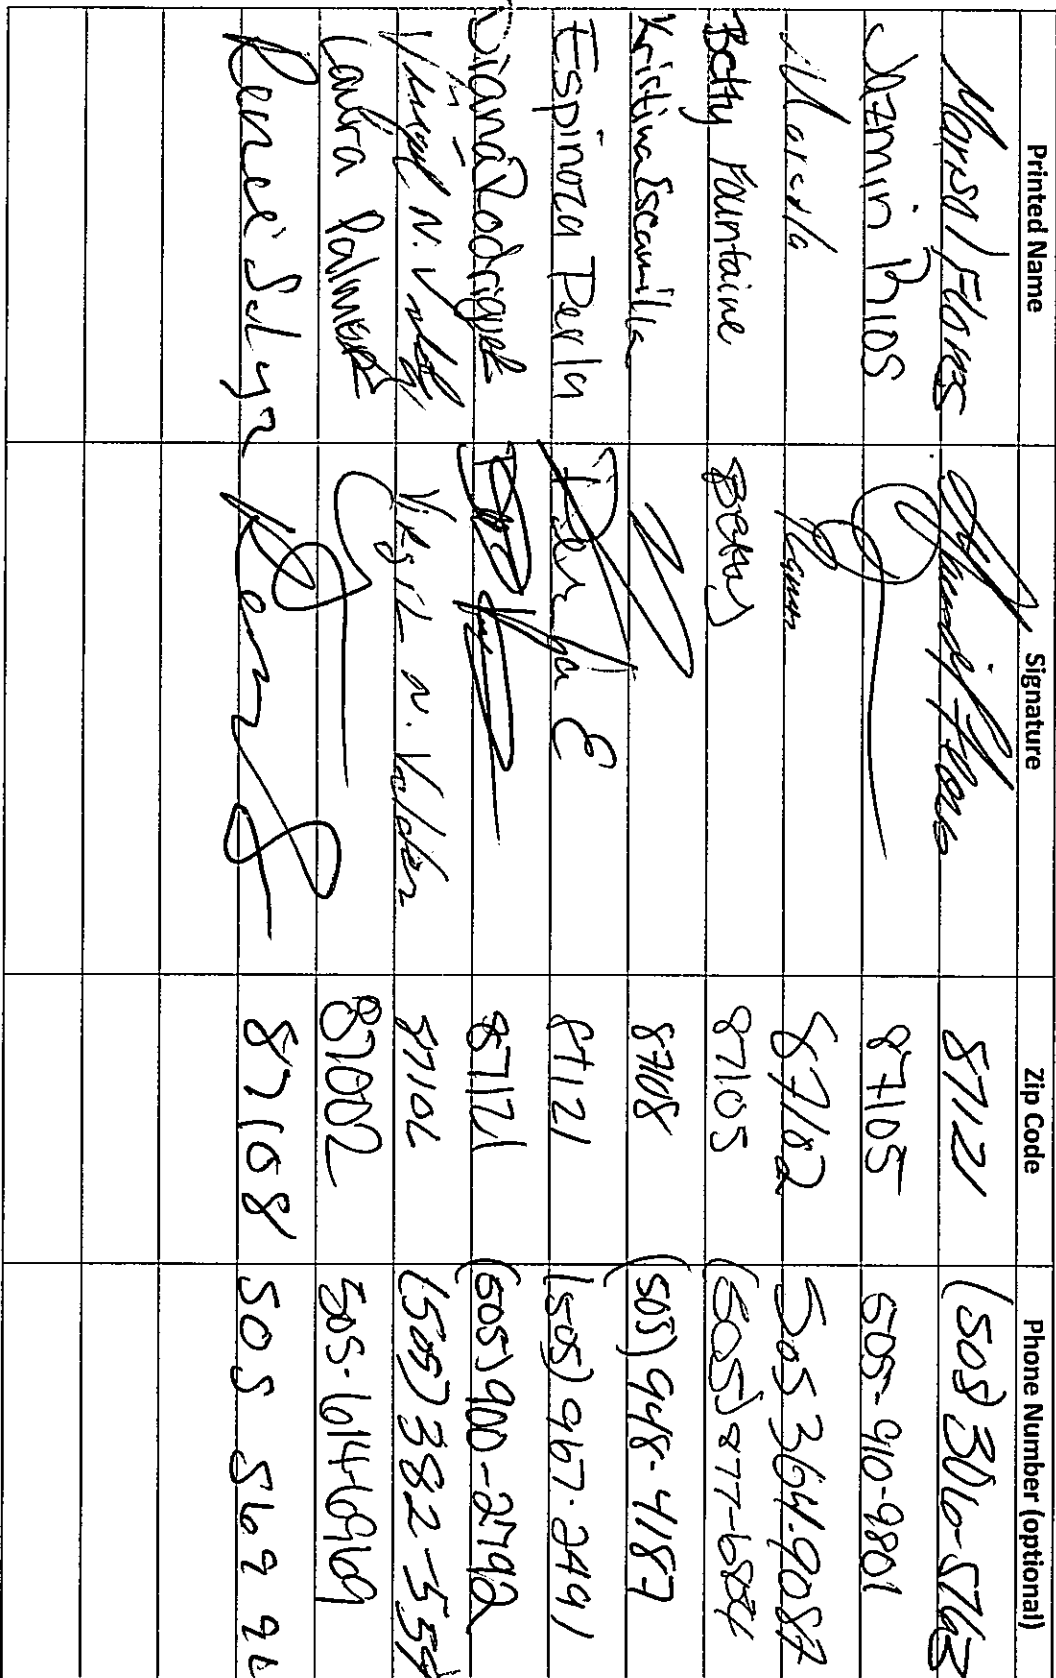 Printed Name Signature Zip Code Phone Number (optional)
Flores 87121 (505) 306-5763
Jazmin Rios 87105 505-910-9801
Marcela 87102 505 364-9087
Betty Fountaine Betty 87105 (505) 877-6884
Kristina Escamilla 87108 (505) 948-4187
Espinoza Perla Perla E 87121 (505) 967-2491
Diana Rodriguez 87121 (505) 900-2792
Virgil N. Virgil N. 87102 (505) 382-55
Laura Palmer 87002 505-614-6969
Renee 87108 505 569 96